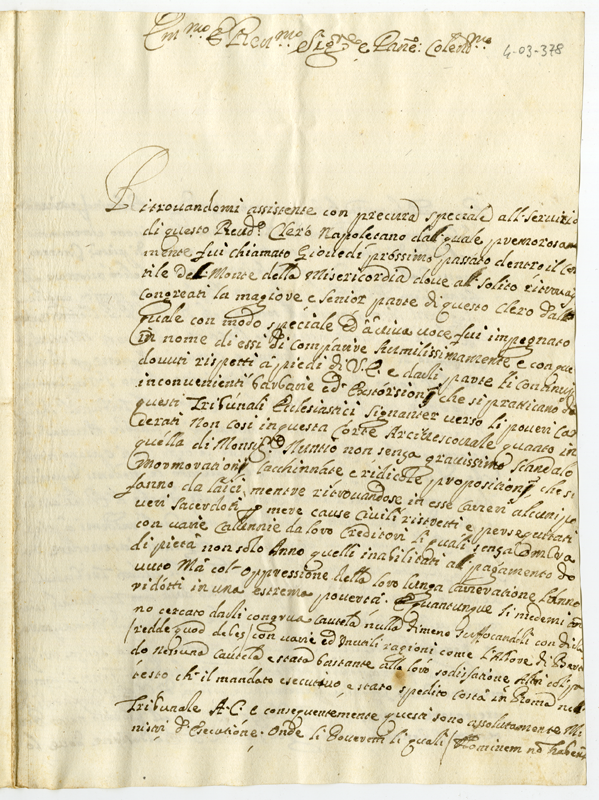 Em.mo e Rev.mo Sig.re e Pañe: Colend.mo
4-03-378
Ritrouandomi assistente con procura speciale all seruizio
di questo Reud.o Clero Napoletano dal quale premorosa
mente fui chiamato Giouedì prossimo passato dentro il Cor
tile del Monte della Misericordia doue al solito ritroua
congreati la magiore e senior parte di questo Clero dalla
quale con modo speciale ed attiua uoce fui impegnato
in nome di essi di comparire humilissimamente e con que
douuti rispetti à piedi di V.E. e darli parte li continui
inconuenienti barbarie ed extorsioni che si pratticano da
questi Tribunali Eclesiastici signanter uerso li poueri Car
cerati non così in questa Corte Arciuescouale quanto in
quella di Monsig.re Nuntio non senza grauissimo scandalo
mormorationi cacchinnate e ridicole propositioni che si
fanno da laici, mentre ritrouandose in esse carceri alcuni po
ueri sacerdoti p mere cause ciuili ristretti e perseguitati
con uarie calunnie da loro creditori li quali senza ombra
di pietà non solo anno quelli inabilitati al pagamento do
uuto Mà col oppressione della loro lunga carceratione l'anno
ridotti in una estrema pouertà. E quantunque li medemi an
no cercato darli congrua cautela nulla dimeno suffocandoli con di
(redde quod debes) con uarie ed inutili ragioni come
do non una cautela e stata bastante alla loro sodisfatione Altri col p
testo ch'il mandato esecutiuo e stato spedito costà in Roma nel
Tribunale A.C. e conseguentemente questi sono assolutamente Mi
nistri d'Esecutione. Onde li Poueretti li quali (Hominem nō haben